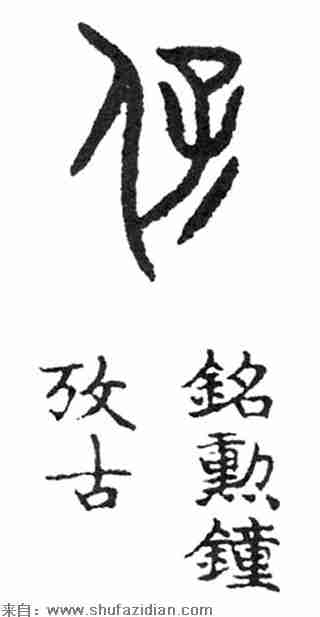 保
銘勲鐘
攷古
来自：www.shufazidian.com